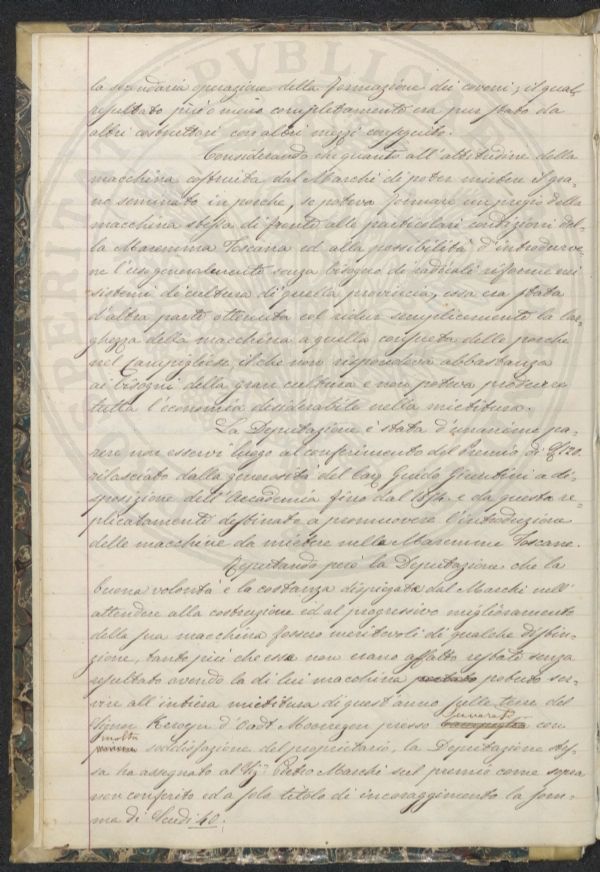 la secondaria operazione della formazione dei covoni; il quale
resultato più o meno completamente era pur stato da
altri costruttori con altri mezzi conseguito.
Considerando che quanto all'attitudine della
macchina costruita dal Marchi di poter mietere il gra-
no seminato in porche, se poteva formare un pregio della
macchina stessa di fronte alle particolari condizioni del-
la Maremma Toscana ed alla possibilità d'introdurve-
ne l'uso generalmente senza bisogno di radicali riforme nei
sistemi di cultura di quella provincia, essa era stata
d'altra parte ottenuta col ridur semplicemente la lar-
ghezza della macchina a quella consueta delle porche
nel Campigliese, il che non rispondeva abbastanza
ai bisogni della gran cultura e non poteva produrre
tutta l'economia desiderabile nella mietitura.
La Deputazione è stata d'unanime pa-
rere non esservi luogo al conferimento del Premio di £ 120.
rilasciato dalla generosità del Cav. Guido Giuntini a di-
sposizione dell'Accademia fino dal 1854. e da questa re-
plicatamente destinato a promuovere l'introduzione
delle macchine da mietere nelle Maremme Toscane.
Reputando però la Deputazione che la
buona volontà e la costanza dispiegata dal Marchi nell'
attendere alla costruzione ed al progressivo miglioramento
della sua macchina fossero meritevoli di qualche distin-
zione, tanto più che esse non erano affatto restate senza
resultato avendo la di lui macchina potuto ser-
vire all'intiera mietitura di quest'anno sulle terre del
Signor d'Oadt Moorregen presso Suvereto con
molta soddisfazione del proprietario, la Deputazione stes-
sa ha assegnato al Sig. Pietro Marchi sul premio come sopra
non conferito ed a solo titolo di incoraggimento la som-
ma di Scudi 40.